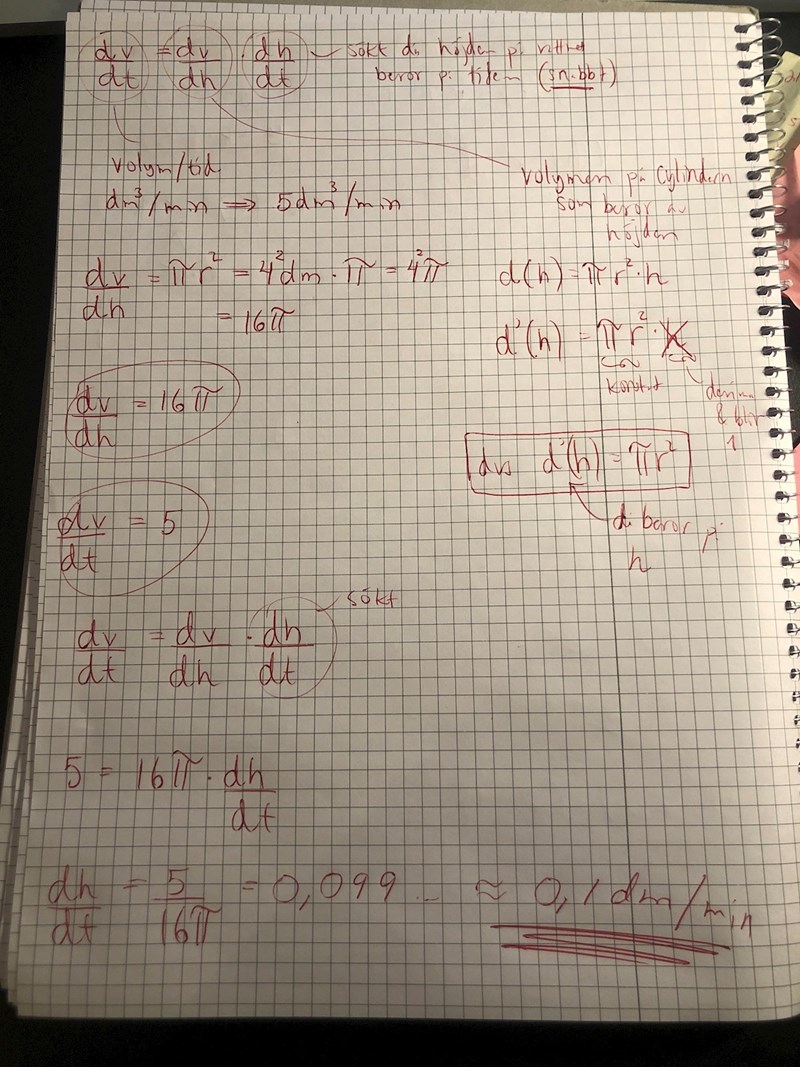 dv/dt = dv/dh · dh/dt sökt då höjden på vattnet
beror på tiden (sn.bbt)
volym/tid
dm³/min ⇒ 5dm³/min
volymen på cylindern
som beror av
höjden
dv/dh = πr² = 4²dm · π = 4²π
= 16π
d(h) = πr² · h
d'(h) = πr² ·
konstant
& blir
1
dv/dh = 16π
dvs d'(h) = πr²
då beror på
h
dv/dt = 5
sökt
dv/dt = dv/dh · dh/dt
5 = 16π · dh/dt
dh/dt = 5/16π = 0,099... ≈ 0,1 dm/min